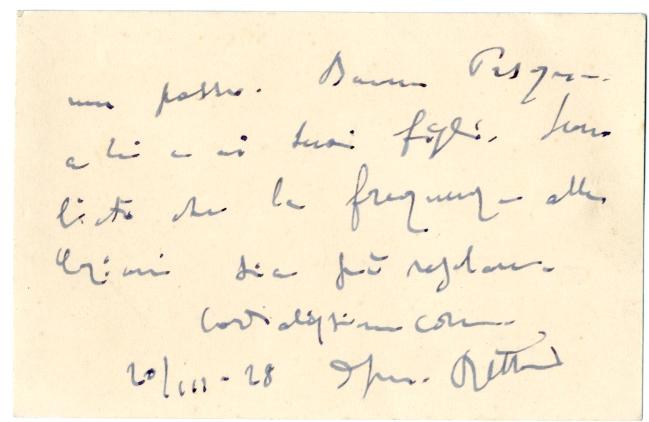 un passo. Buona Pasqua
a Lei e ai suoi figli. Sono
lieto che la frequenza alle
lezioni sia più regolare.
Cordialissimamente
20/III-28